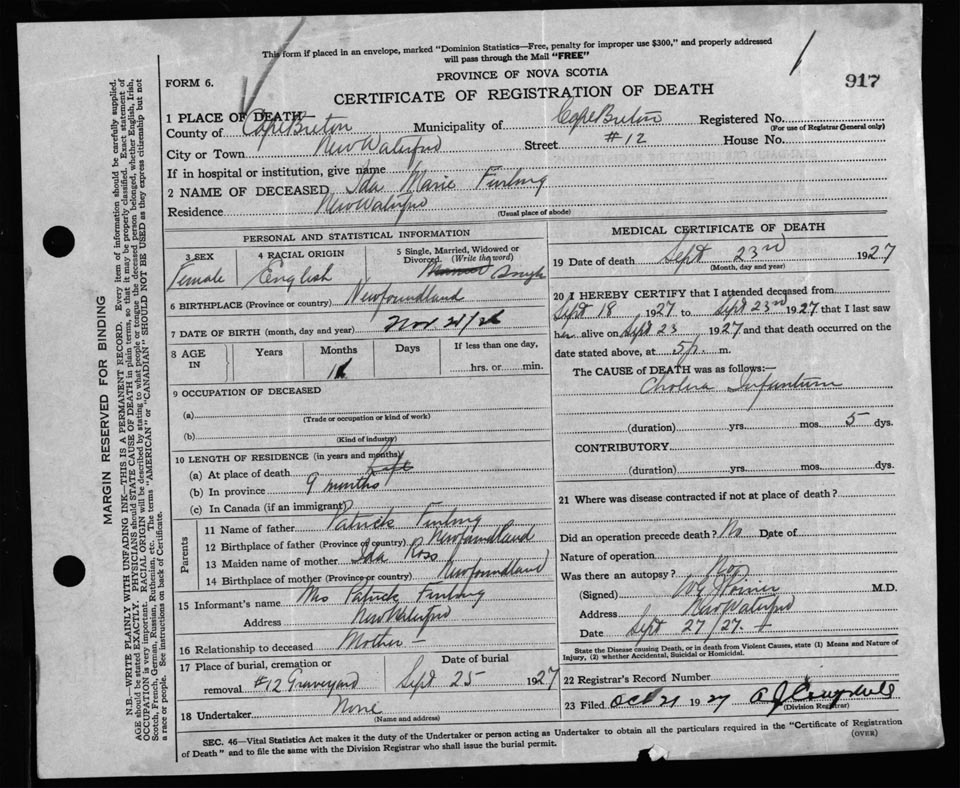 This form if placed in an envelope, marked "Dominion Statistics—Free, penalty for improper use $300," and properly addressed
will pass through the Mail "FREE"
FORM 6.
PROVINCE OF NOVA SCOTIA
917
CERTIFICATE OF REGISTRATION OF DEATH
1 PLACE OF DEATH—
County of Cape Breton Municipality of Cape Breton Registered No.
(For use of Registrar General only)
City or Town New Waterford Street #12 House No.
If in hospital or institution, give name
2 NAME OF DECEASED Ida Marie Furlong
Residence New Waterford
(Usual place of abode)
PERSONAL AND STATISTICAL INFORMATION
3 SEX 4 RACIAL ORIGIN 5 Single, Married, Widowed or Divorced. (Write the word)
Female English Single
6 BIRTHPLACE (Province or country) Newfoundland
7 DATE OF BIRTH (month, day and year) Nov 21/26
8 AGE IN Years Months Days If less than one day,
hrs. or min.
9 OCCUPATION OF DECEASED
(a)
(Trade or occupation or kind of work)
(b)
(Kind of industry)
10 LENGTH OF RESIDENCE (in years and months)
(a) At place of death
(b) In province 9 months
(c) In Canada (if an immigrant)
Parents
11 Name of father Patrick Furlong
12 Birthplace of father (Province or country) Newfoundland
13 Maiden name of mother Ida Ross
14 Birthplace of mother (Province or country) Newfoundland
15 Informant's name Mrs Patrick Furlong
Address New Waterford
16 Relationship to deceased Mother
17 Place of burial, cremation or removal #12 Graveyard
Date of burial
Sept 25 1927
18 Undertaker None
(Name and address)
MEDICAL CERTIFICATE OF DEATH
19 Date of death Sept 23rd 1927
(Month, day and year)
20 I HEREBY CERTIFY that I attended deceased from
Sept 18 1927 to Sept 23rd 1927 that I last saw
her alive on Sept 23 1927 and that death occurred on the
date stated above, at 5 p. m.
The CAUSE of DEATH was as follows:—
Cholera Infantum
(duration) yrs. mos. 5 dys.
CONTRIBUTORY
(duration) yrs. mos. dys.
21 Where was disease contracted if not at place of death?
Did an operation precede death? No Date of
Nature of operation
Was there an autopsy? No
(Signed) M.D.
Address New Waterford
Date Sept 27/27.
State the Disease causing Death, or in death from Violent Causes, state (1) Means and Nature of
Injury, (2) whether Accidental, Suicidal or Homicidal.
22 Registrar's Record Number
23 Filed Oct 21 1927
(Division Registrar)
SEC. 46—Vital Statistics Act makes it the duty of the Undertaker or person acting as Undertaker to obtain all the particulars required in the "Certificate of Registration
of Death" and to file the same with the Division Registrar who shall issue the burial permit.
(OVER)
MARGIN RESERVED FOR BINDING
N.B.—WRITE PLAINLY WITH UNFADING INK—THIS IS A PERMANENT RECORD. Every item of information should be carefully supplied.
AGE should be stated EXACTLY. PHYSICIANS should STATE CAUSE OF DEATH in plain terms, so that it may be properly classified. Exact statement of
OCCUPATION is very important. RACIAL ORIGIN will be described by stating to what people or tongue the deceased person belonged, whether English, Irish,
Scotch, French, German, Russian, Ruthenian, etc. The terms "AMERICAN" or "CANADIAN" SHOULD NOT BE USED as they express citizenship but not
a race or people. See instructions on back of Certificate.